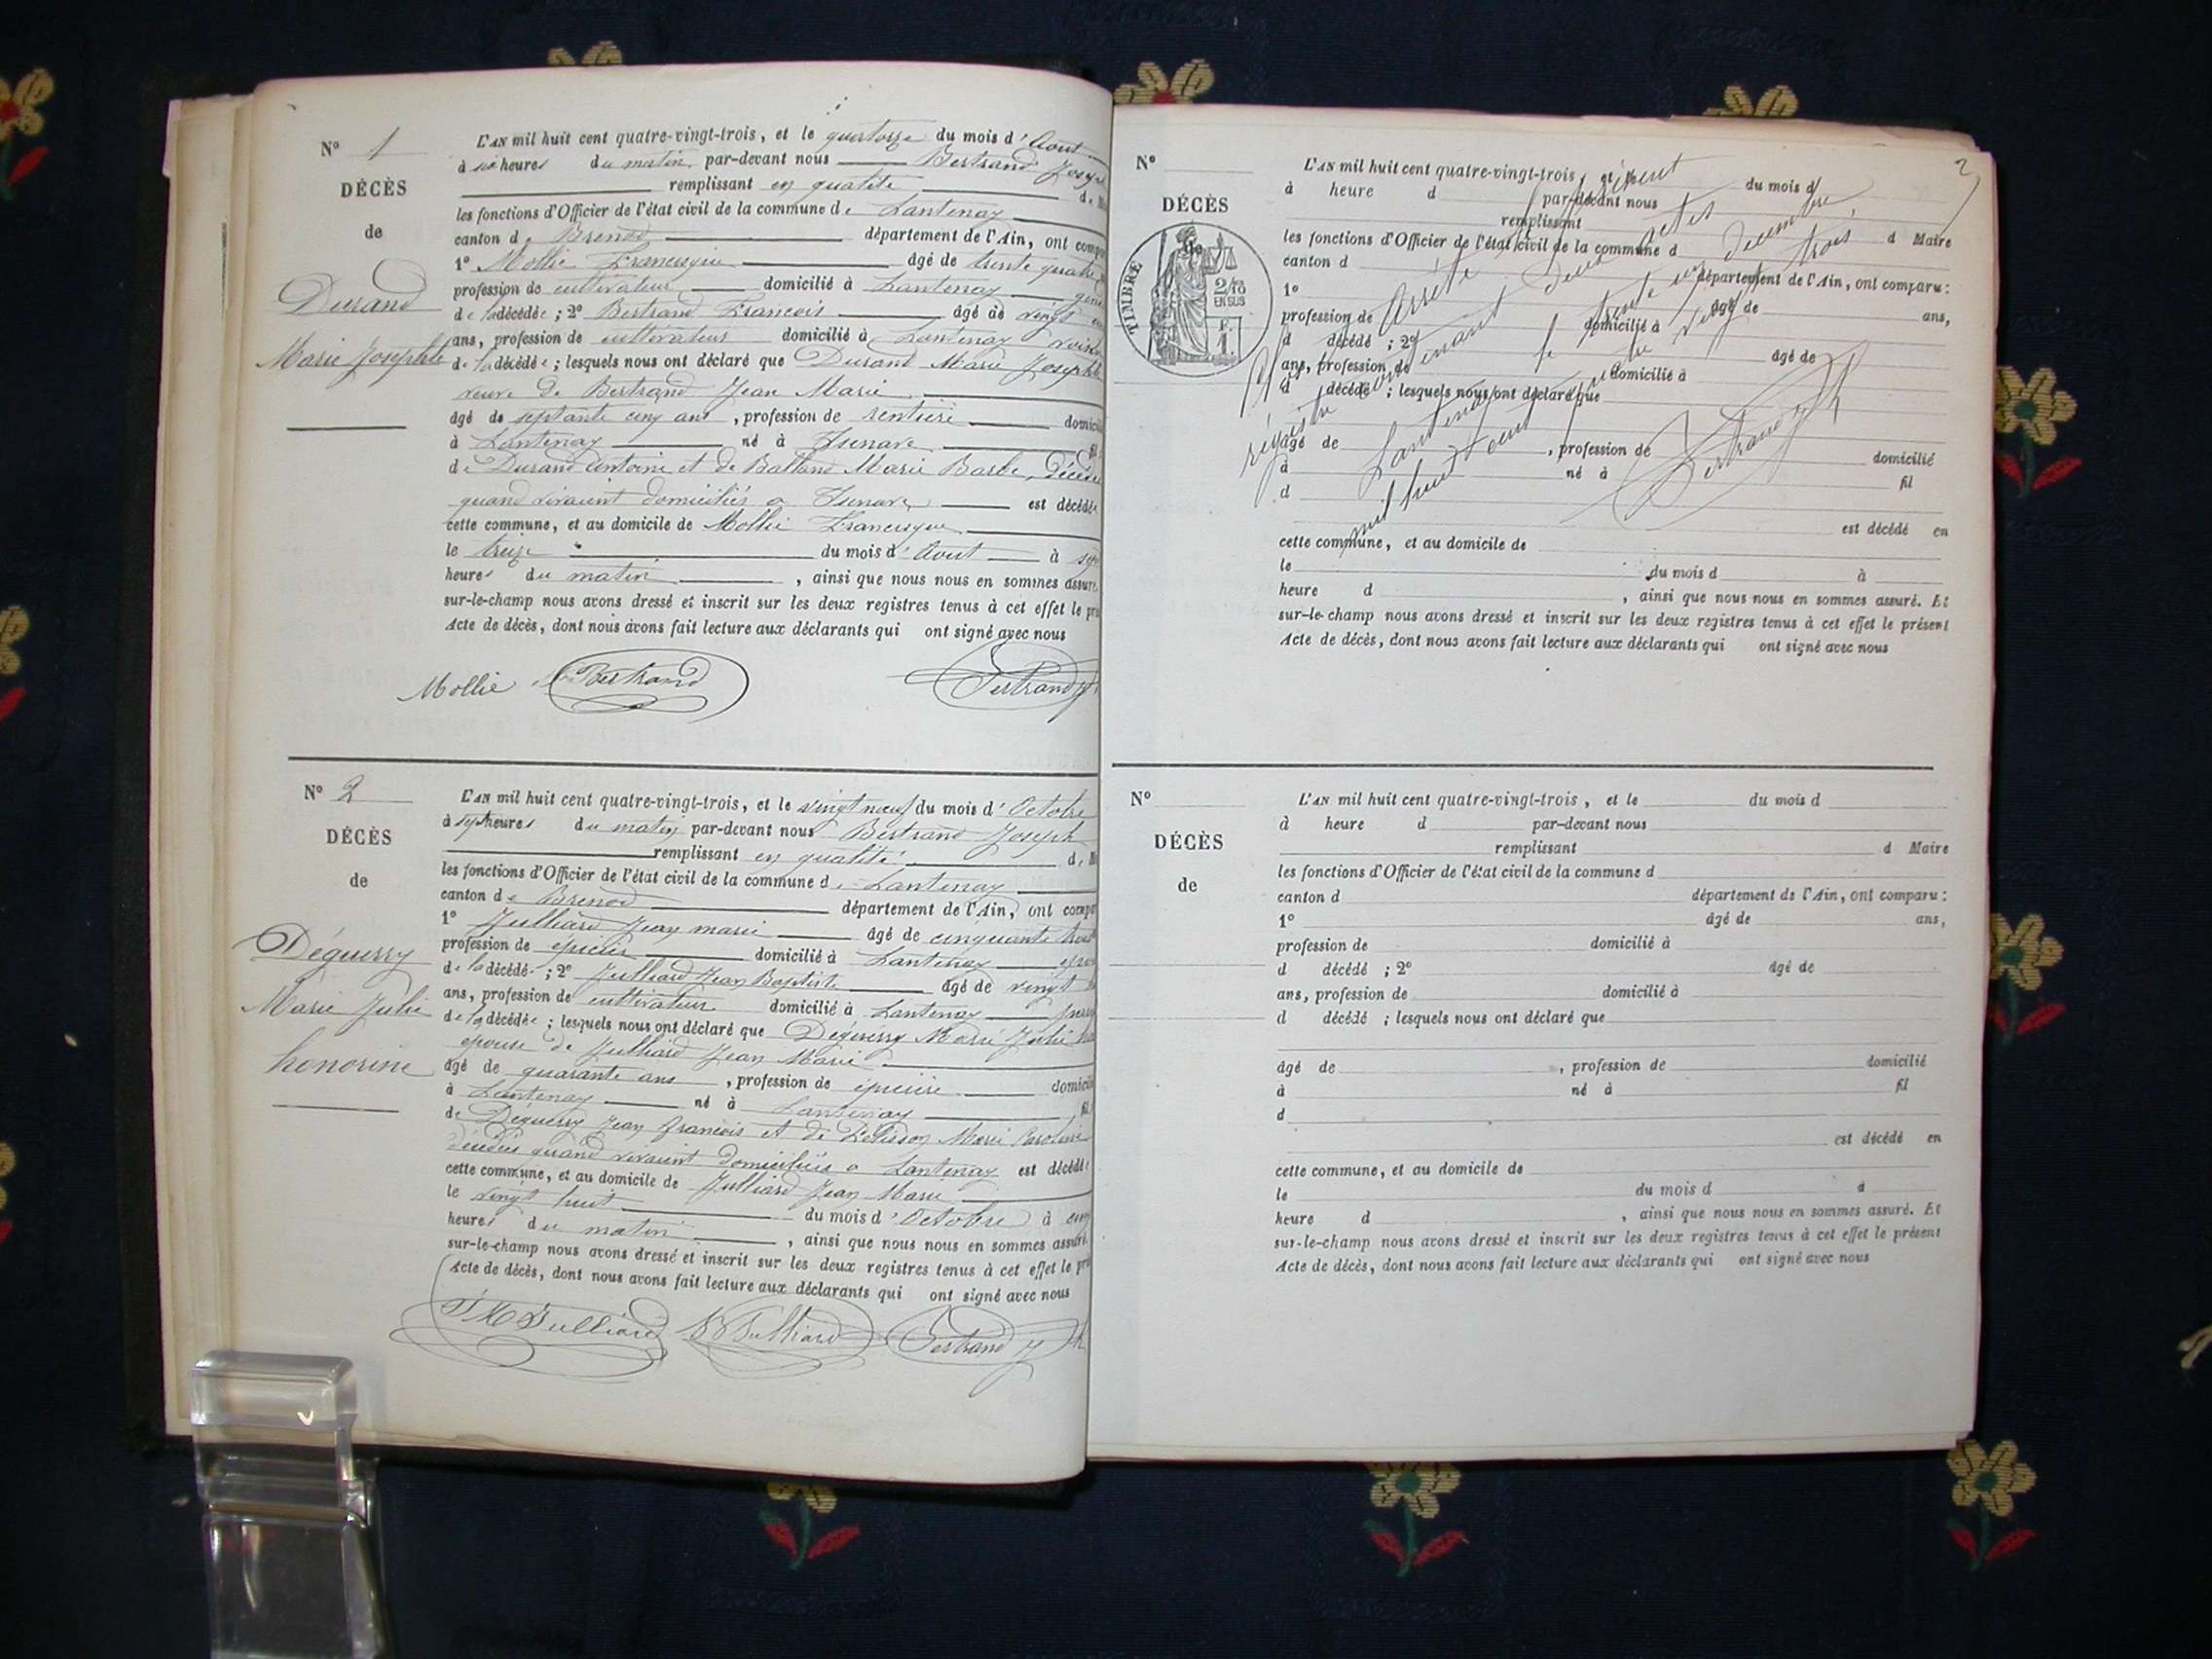 N° 1
DÉCÈS
de
Durand
Marie Josephte
L'AN mil huit cent quatre-vingt-trois, et le quatorze du mois d'Aout
à six heures du matin par-devant nous Bertrand Joseph
remplissant en qualité de
les fonctions d'Officier de l'état civil de la commune de Lantenay
canton de Brenod département de l'Ain, ont comp
1° Mollie Francisque âgé de trente quatre
profession de cultivateur domicilié à Lantenay
de la décédée; 2° Bertrand Francois âgé de vingt
ans, profession de cultivateur domicilié à Lantenay voisin
de la décédée; lesquels nous ont déclaré que Durand Marie Josephte
veuve de Bertrand Jean Marie
âgé de septante cinq ans, profession de rentiere domicil
à Lantenay né à Izenave
de Durand Antoine et de Balland Marie Barbe, décédés
quand vivaient domiciliés a Izenave est décédée
cette commune, et au domicile de Mollie Francisque
le treize du mois d'Aout à sept
heures du matin, ainsi que nous nous en sommes assuré.
sur-le-champ nous avons dressé et inscrit sur les deux registres tenus à cet effet le pré
Acte de décès, dont nous avons fait lecture aux déclarants qui ont signé avec nous
Mollie Bertrand Bertrand
N° 2
DÉCÈS
de
Déguerry
Marie Julie
honorine
L'AN mil huit cent quatre-vingt-trois, et le vingt neuf du mois d'Octobre
à sept heures du matin par-devant nous Bertrand Joseph
remplissant en qualité de
les fonctions d'Officier de l'état civil de la commune de Lantenay
canton de Brenod département de l'Ain, ont comp
1° Julliard Jean marie âgé de cinquante trois
profession de épicier domicilié à Lantenay
de la décédée; 2° Julliard Jean Baptiste âgé de vingt
ans, profession de cultivateur domicilié à Lantenay
de la décédée; lesquels nous ont déclaré que Déguerry Marie Julie
épouse de Julliard Jean Marie
âgé de quarante ans, profession de épicière domicil
à Lantenay né à Lantenay
de Déguerry Jean françois et de Marie Caroline
décédés quand vivaient domiciliés a Lantenay est décédée
cette commune, et au domicile de Julliard Jean Marie
le vingt huit du mois d'Octobre à cinq
heures du matin, ainsi que nous nous en sommes assuré.
sur-le-champ nous avons dressé et inscrit sur les deux registres tenus à cet effet le pré
Acte de décès, dont nous avons fait lecture aux déclarants qui ont signé avec nous
JM Julliard JB Julliard Bertrand
2
N°
DÉCÈS
de
TIMBRE
2/10
EN SUS
F.
1.
L'AN mil huit cent quatre-vingt-trois, et le du mois d
à heure d par-devant nous
remplissant d Maire
les fonctions d'Officier de l'état civil de la commune d
canton d département de l'Ain, ont comparu:
1° âgé de ans,
profession de domicilié à
d décédé; 2° âgé de
ans, profession de domicilié à
d décédé; lesquels nous ont déclaré que
âgé de, profession de domicilié
à né à fil
d
est décédé en
cette commune, et au domicile de
le du mois d à
heure d, ainsi que nous nous en sommes assuré. Et
sur-le-champ nous avons dressé et inscrit sur les deux registres tenus à cet effet le présent
Acte de décès, dont nous avons fait lecture aux déclarants qui ont signé avec nous
Arrêté le présent
registre contenant deux actes
Lantenay le trente un Decembre
mil huit cent quatre vingt trois
Bertrand
N°
DÉCÈS
de
L'AN mil huit cent quatre-vingt-trois, et le du mois d
à heure d par-devant nous
remplissant d Maire
les fonctions d'Officier de l'état civil de la commune d
canton d département de l'Ain, ont comparu:
1° âgé de ans,
profession de domicilié à
d décédé; 2° âgé de
ans, profession de domicilié à
d décédé; lesquels nous ont déclaré que
âgé de, profession de domicilié
à né à fil
d
est décédé en
cette commune, et au domicile de
le du mois d à
heure d, ainsi que nous nous en sommes assuré. Et
sur-le-champ nous avons dressé et inscrit sur les deux registres tenus à cet effet le présent
Acte de décès, dont nous avons fait lecture aux déclarants qui ont signé avec nous